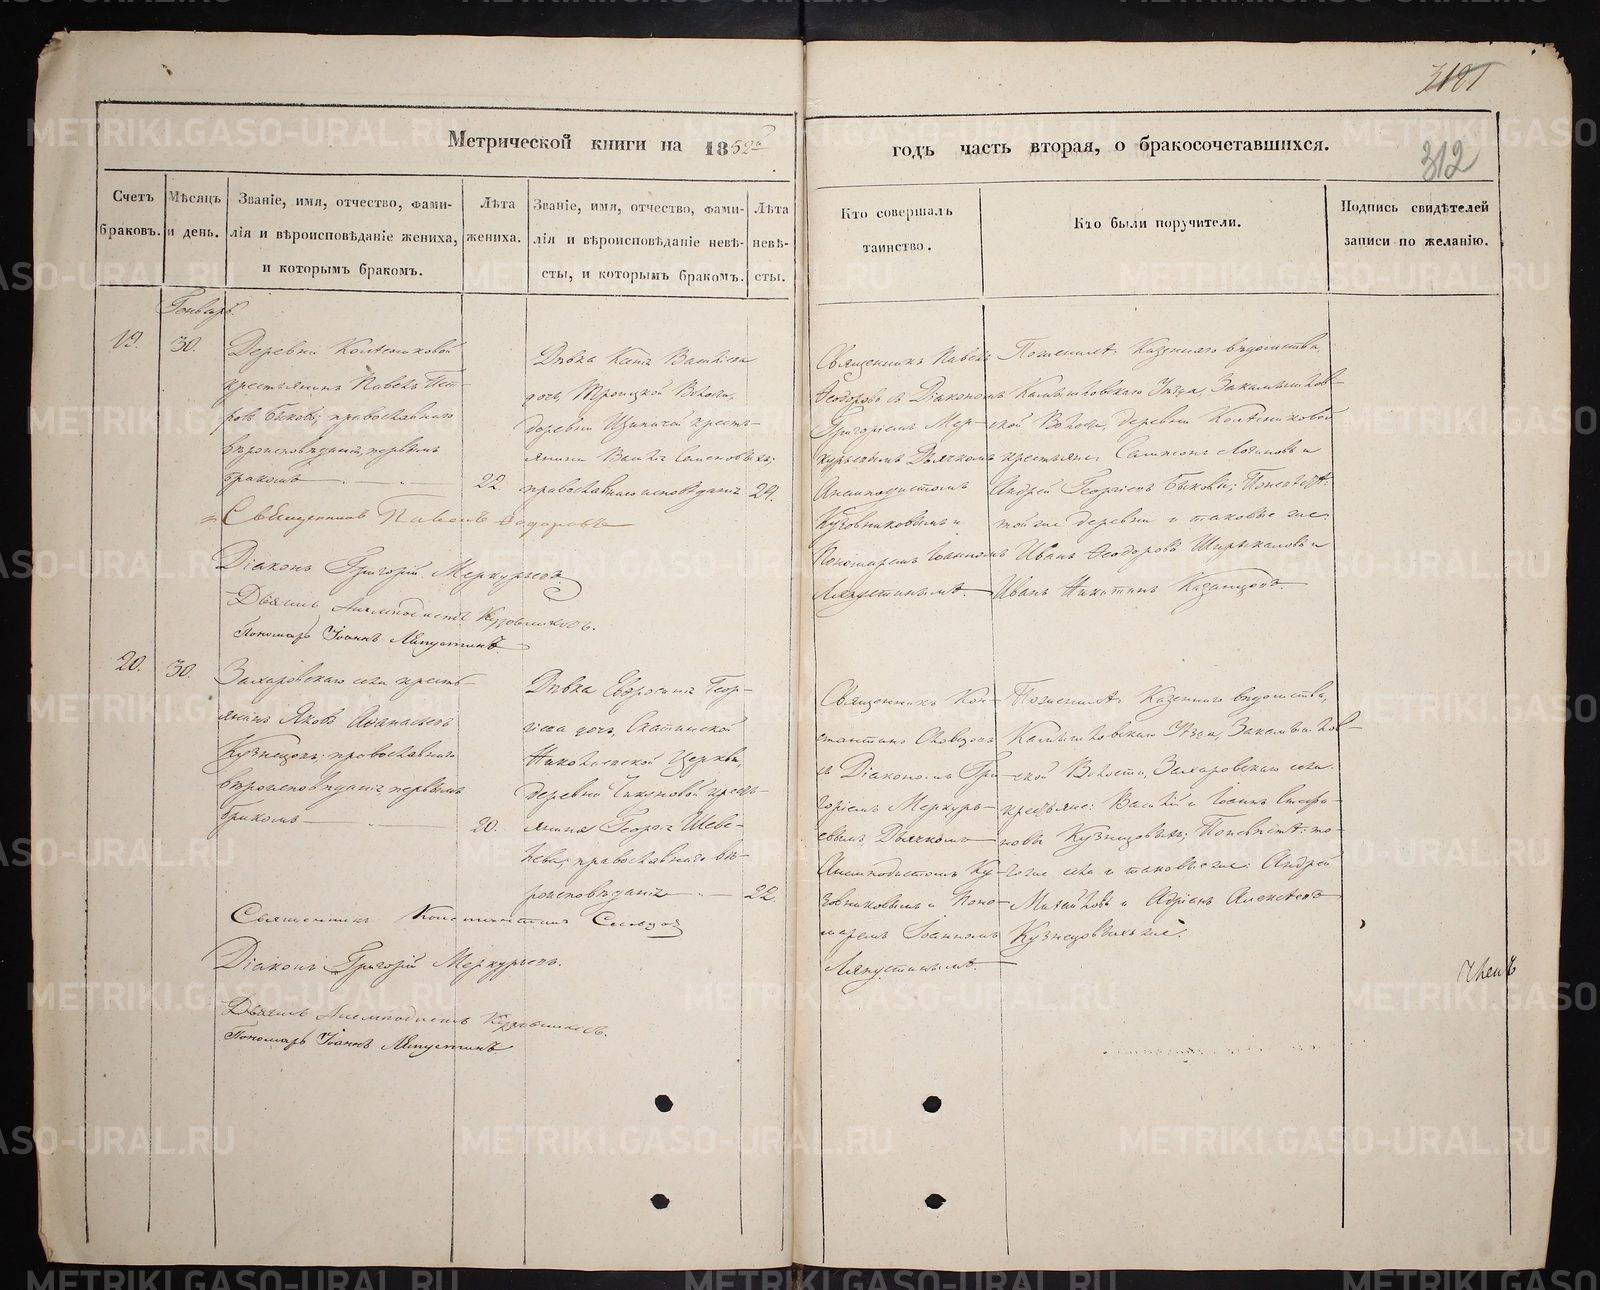 3121
312
Метрической книги на 1852й
годъ часть вторая, о бракосочетавшихся.
Счетъ браковъ.
Мѣсяцъ и день.
Званіе, имя, отчество, фами-
лія и вѣроисповѣданіе жениха,
и которымъ бракомъ.
Лѣта
жениха.
Званіе, имя, отчество, фами-
лія и вѣроисповѣданіе невѣ-
сты, и которымъ бракомъ.
Лѣта
невѣ-
сты.
Кто совершалъ
таинство.
Кто были поручители.
Подпись свидѣтелей
записи по желанію.
Генварь
19.
30.
Деревни
крестьянинъ Павелъ Пет-
ровъ Быковъ; православнаго
вѣроисповѣданія, первымъ
бракомъ
22.
Дѣвка
дочь Троицкой Волости,
деревни крестъ-
янина
православнаго исповѣданія
Священникъ Павелъ
Ѳеодоровъ съ Діакономъ
Григоріемъ Мер-
курьевымъ Дьячкомъ
Кузовниковымъ и
Пономаремъ Іоанномъ
Ляпустинымъ.
По женихѣ: Казеннаго вѣдомства,
Камышловскаго Уѣзда, Закамышлов-
ской Волости, деревни
крестьяне: и
Андрей Георгіевъ Быковы; По невѣстѣ:
той же деревни и таковые же:
Иванъ Ѳеодоровъ и
Иванъ Никитинъ Казанцовъ.
Священникъ Павелъ Ѳедоровъ
Діаконъ Григорій Меркурьевъ.
Дьячекъ Кузовниковъ.
Пономарь Іоаннъ Ляпустинъ.
20.
30.
Захаровскаго села кресть-
янинъ Яковъ Аѳанасьевъ
Кузнецовъ; православнаго
вѣроисповѣданія первымъ
бракомъ
20.
Дѣвка Евфросинія Геор-
гіева дочь, Скатинской
Николаевской Церкви,
деревни крестъ-
янина Георгія Шеве-
лева; православнаго вѣ-
роисповѣданія
22.
Священникъ Кон-
стантинъ Словцовъ
съ Діакономъ Гри-
горіемъ Меркурь-
евымъ Дьячкомъ
Ку-
зовниковымъ и Поно-
маремъ Іоанномъ
Ляпустинымъ.
По женихѣ: Казеннаго вѣдомства,
Камышловскаго Уѣзда, Закамышлов-
ской Волости, Захаровскаго села
крестьяне: Василій и Іоаннъ Стефа-
новы Кузнецовыхъ; По невѣстѣ: то-
гоже села и таковые же: Андрей
Михайловъ и Адріанъ Алексѣевъ
Кузнецовыхъ же.
Священникъ Константинъ Словцовъ
Діаконъ Григорій Меркурьевъ.
Дьячекъ Кузовниковъ.
Пономарь Іоаннъ Ляпустинъ
Членъ
METRIKI.GASO-URAL.RU